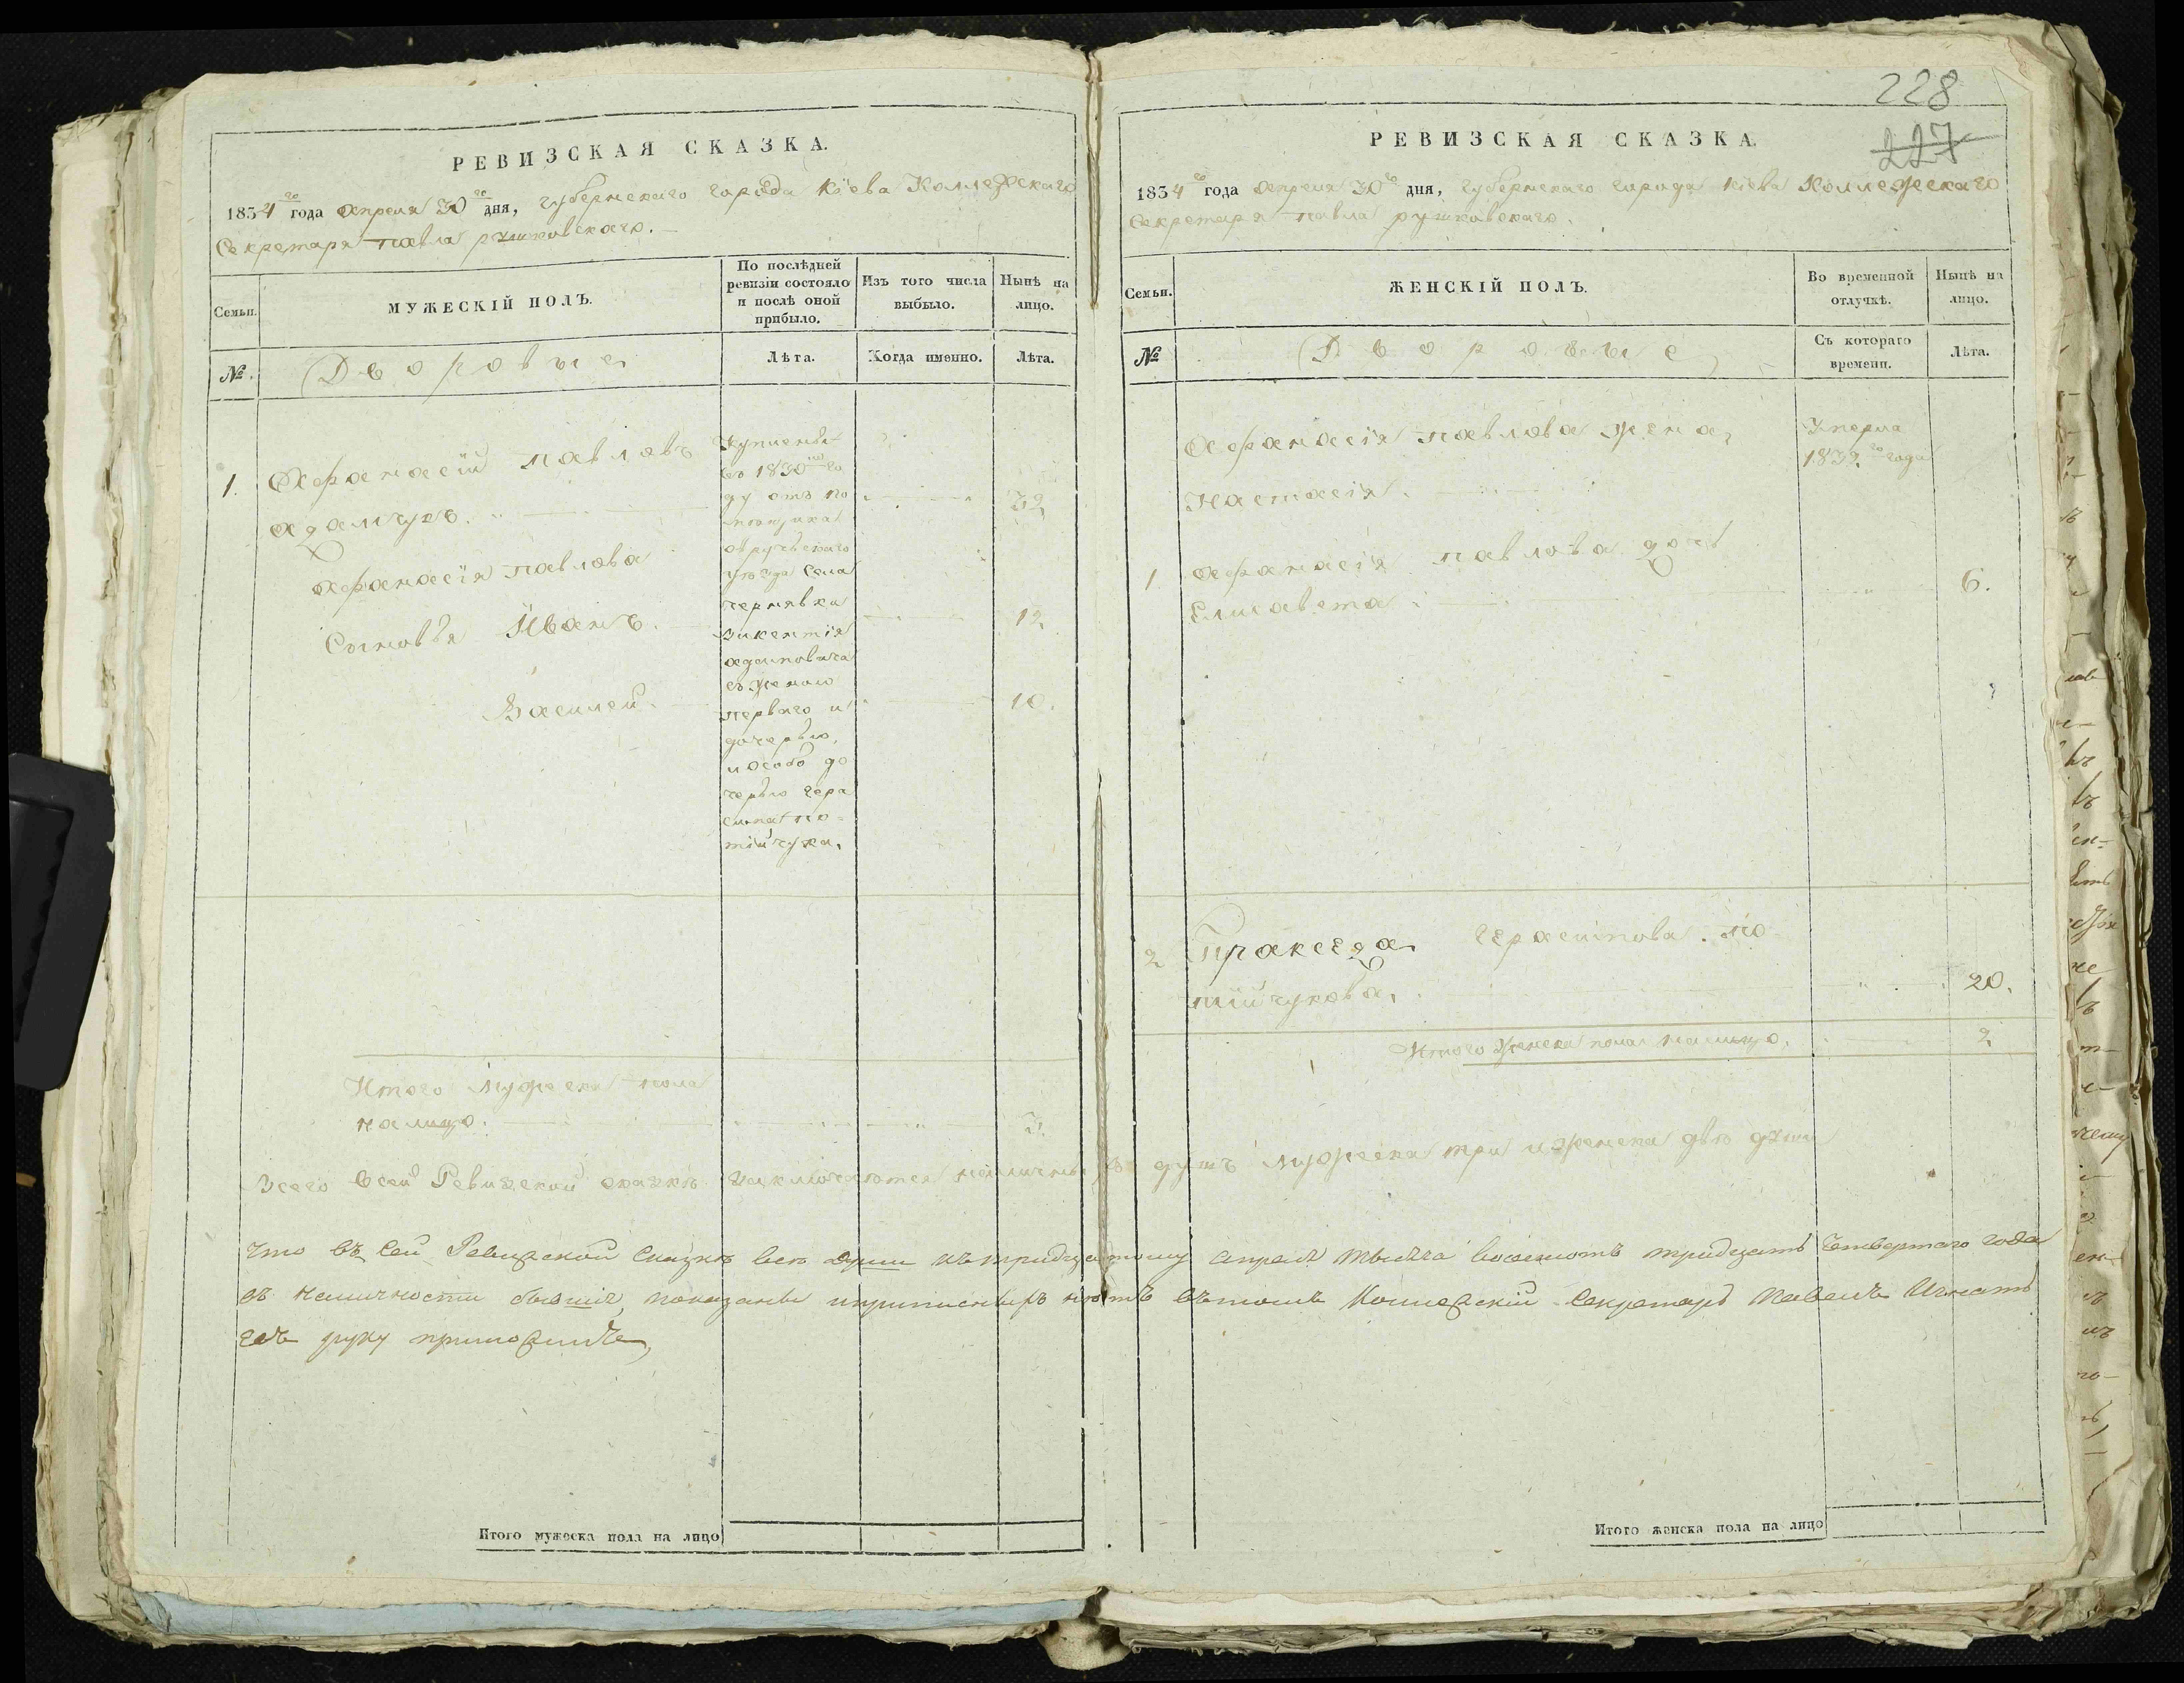 РЕВИЗСКАЯ СКАЗКА.
1834го года апреля 30го дня, губернскаго города Кіева Коллежскаго
Секретаря павла рушковскаго.
Семьи.
МУЖЕСКІЙ ПОЛЪ.
По послѣдней ревизіи состояло и послѣ оной прибыло.
Изъ того числа выбыло.
Нынѣ на лицо.
№.
Дворовые
Лѣта.
Когда именно.
Лѣта.
1. Афанасій павловъ
адамчукъ. 32
Афанасія павлова
Сыновья Иванъ. 12
Василей. 10.
Куплены
въ 1830м го
ду отъ по
овручьскаго
уѣзда села
чернявки
викентія
съ женою
перваго и
дочерью,
и особо до
черью гера
сима по
тійчука,
Итого мужеска пола
налицо. 3.
Всего всей Ревизской сказкѣ заключается наличныхъ душъ мужеска три и женска двѣ души
что въ сей Ревизской Сказкѣ всѣ души къ тридцатому апрелю тысяча восемотъ тридцать четвертаго года
въ наличности бывшіе, показаны и прописныхъ нѣтъ въ томъ Коллежскій Секретарь Павелъ Игнать
руку приложилъ
Итого мужеска пола на лицо
228
227
РЕВИЗСКАЯ СКАЗКА.
1834го года апреля 30го дня, губернскаго города Кіева Коллежскаго
Секретаря павла рушковскаго.
Семьи.
ЖЕНСКІЙ ПОЛЪ.
Во временной отлучкѣ.
Нынѣ на лицо.
№
Дворовые
Съ котораго времени.
Лѣта.
Афанасія павлова жена,
Настасія.
Умерла
1832го года
1 афанасія павлова дочь
Елисавета 6.
2 Пракседа герасимова по
тійчукова, 20.
Итого женска пола налицо. 2
Итого женска пола на лицо